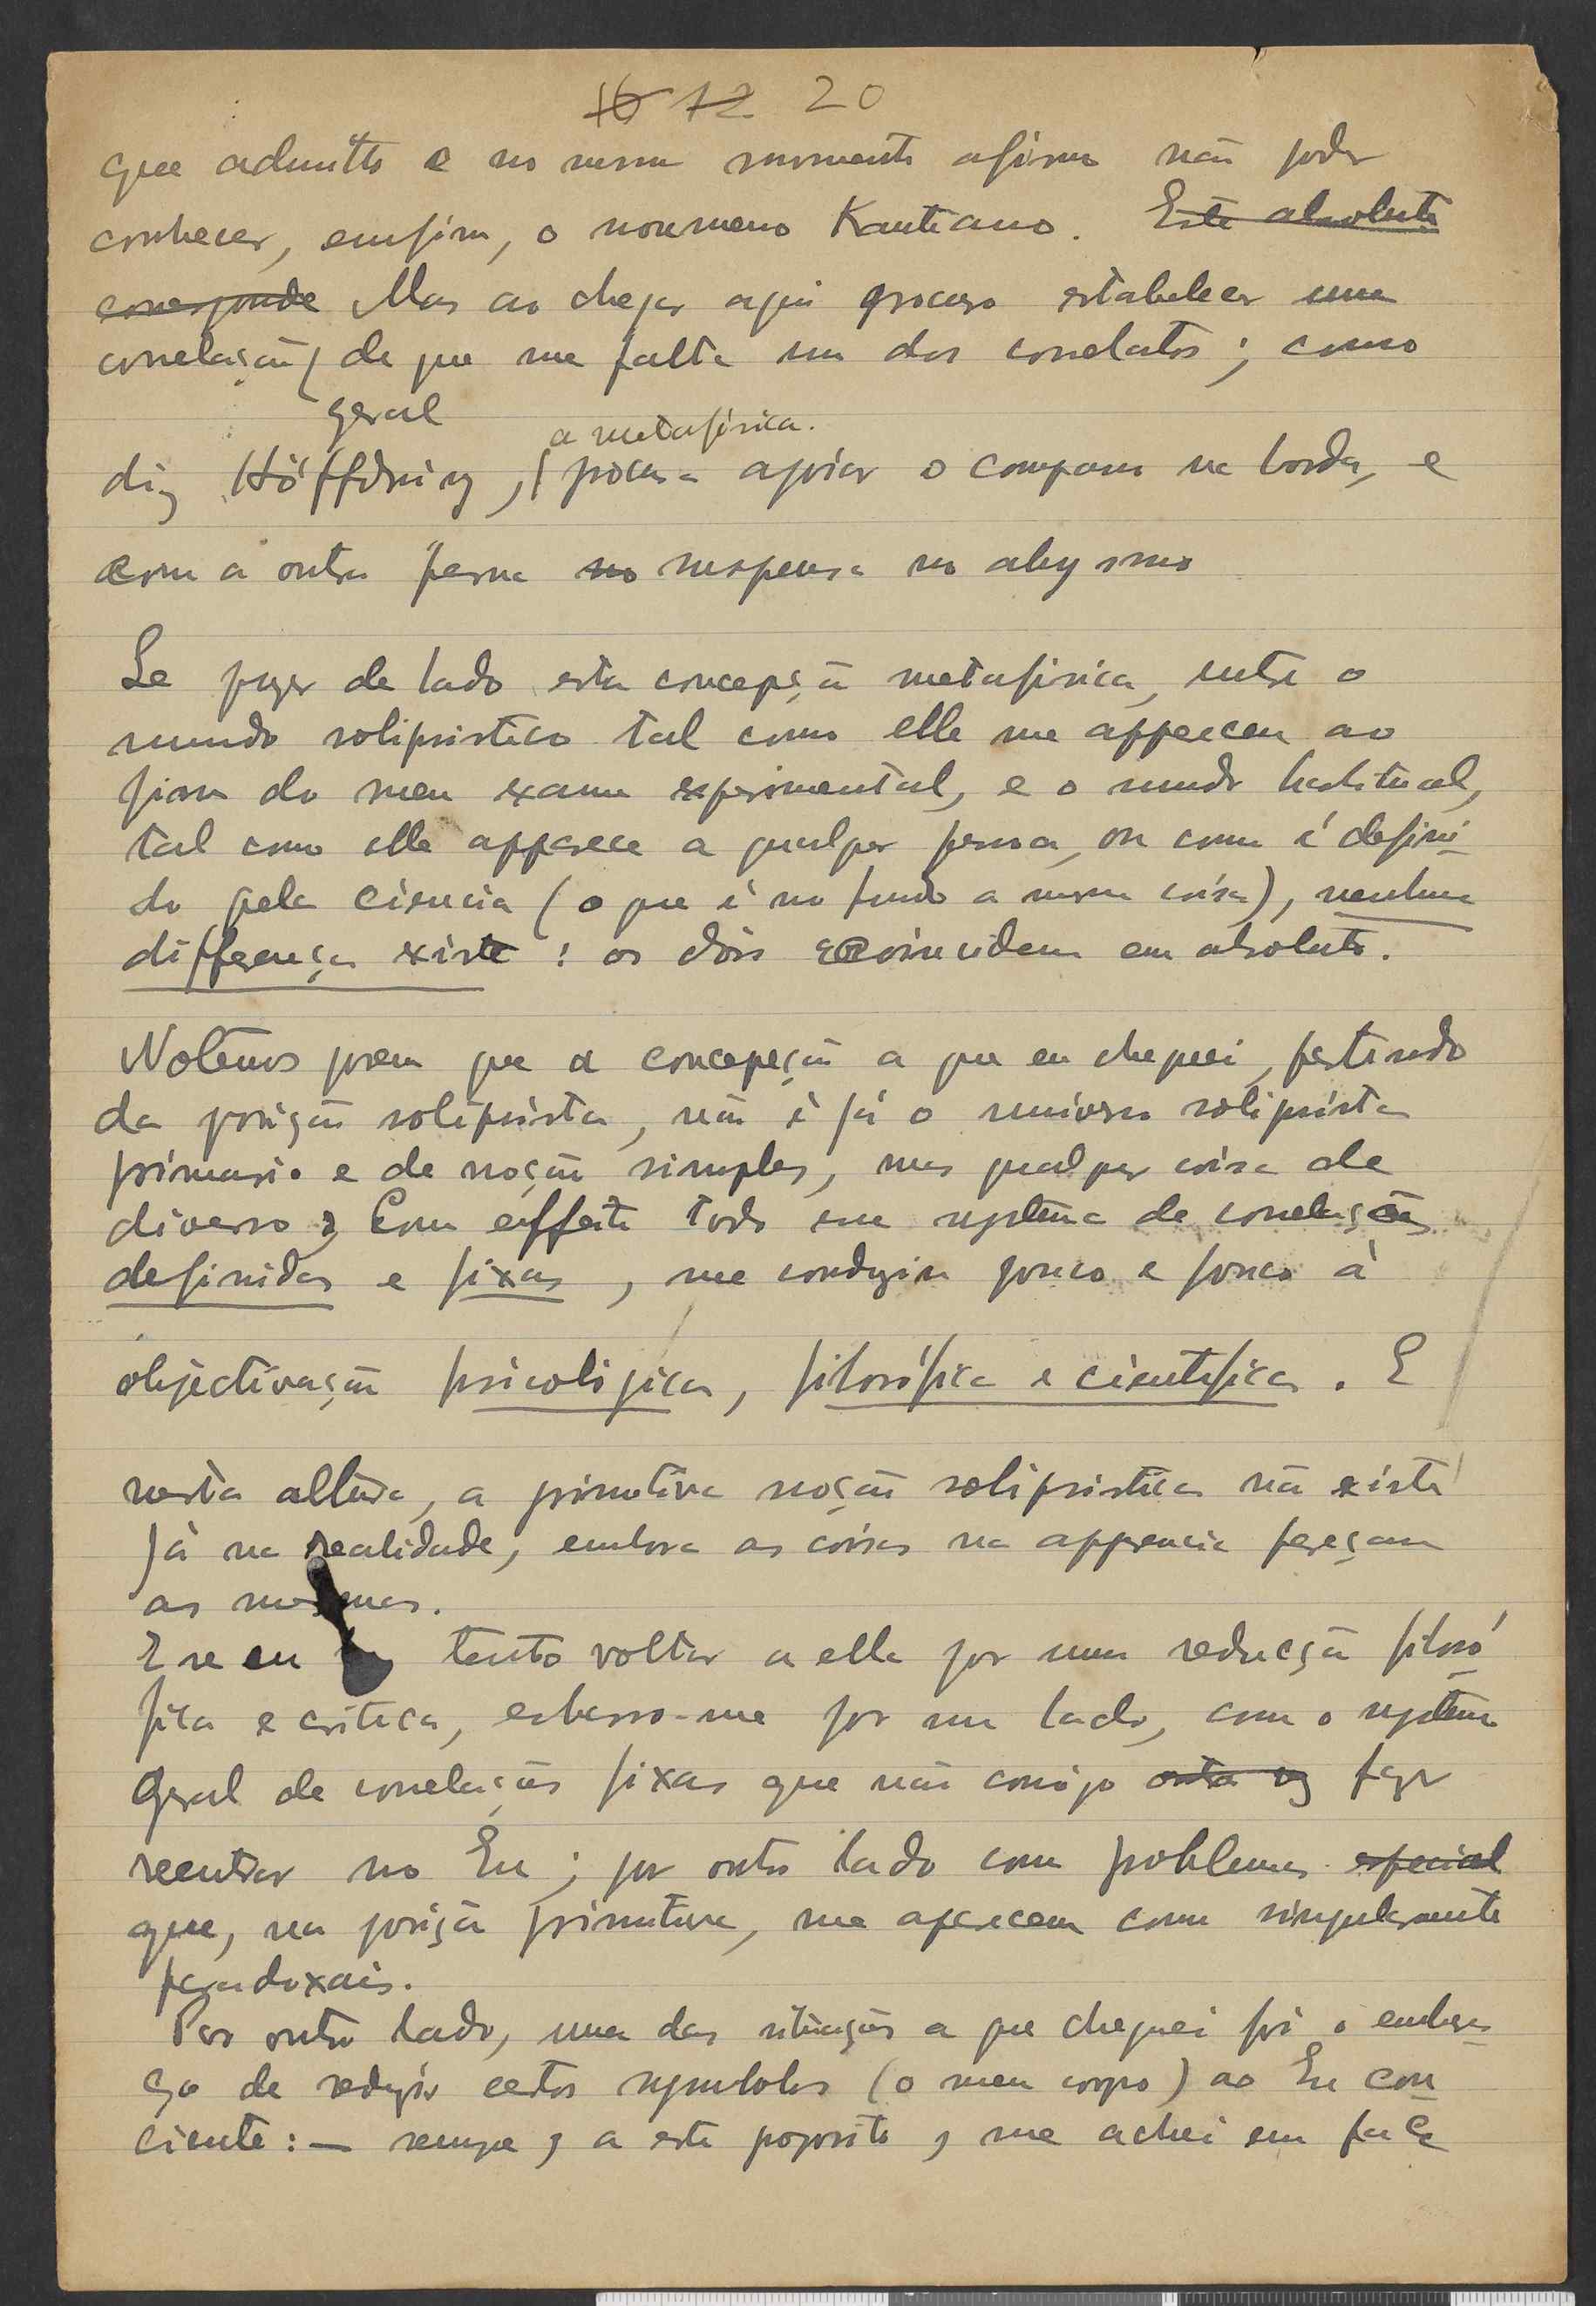 16 12 20
que admitto e no mesmo momento afirmo não poder
conhecer, emfim, o noumeno Kantiano. Este absoluto
corresponde Mas ao chegar aqui procuro estabelecer uma
correlação de que me falta um dos correlatos; como
geral
a metafisica.
diz Höffding, procura apoiar o compasso na borda, e
com a outra perna no suspensa no abysmo
Se puzer de lado esta concepção metafisica, entre o
mundo solipsistico tal como elle me appareceu ao
fim do meu exame experimental, e o mundo habitual,
tal como elle apparece a qualquer pessoa, ou como é defini-
do pela ciencia (o que é no fundo a mesma coisa), nenhuma
differença existe: os dois coincidem em absoluto.
Notemos porem que a concepção a que eu cheguei, partindo
da posição solipsista, não é já o universo solipsista
primario e de noção simples, mas qualquer coisa de
diverso; Com effeito todo um systema de correlações
definidas e fixas, me conduziu pouco e pouco á
objectivação psicologica, filosófica e cientifica. E
nesta altura, a primitiva noção solipsistica não existe
já na realidade, embora as coisas na apparencia pareçam
as mesmas.
E se eu tento voltar a ella por uma reducção filosó-
fica e critica, esbarro-me por um lado, com o systema
geral de correlações fixas que não consigo outra vez fazer
reentrar no Eu; por outro lado com problemas especial
que, na posição primitiva, me aparecem como singularmente
paradoxais.
Por outro lado, uma das situações a que cheguei foi o embara-
ço de reduzir certos symbolos (o meu corpo) ao Eu con-
ciente: — sempre, a este proposito, me achei em face